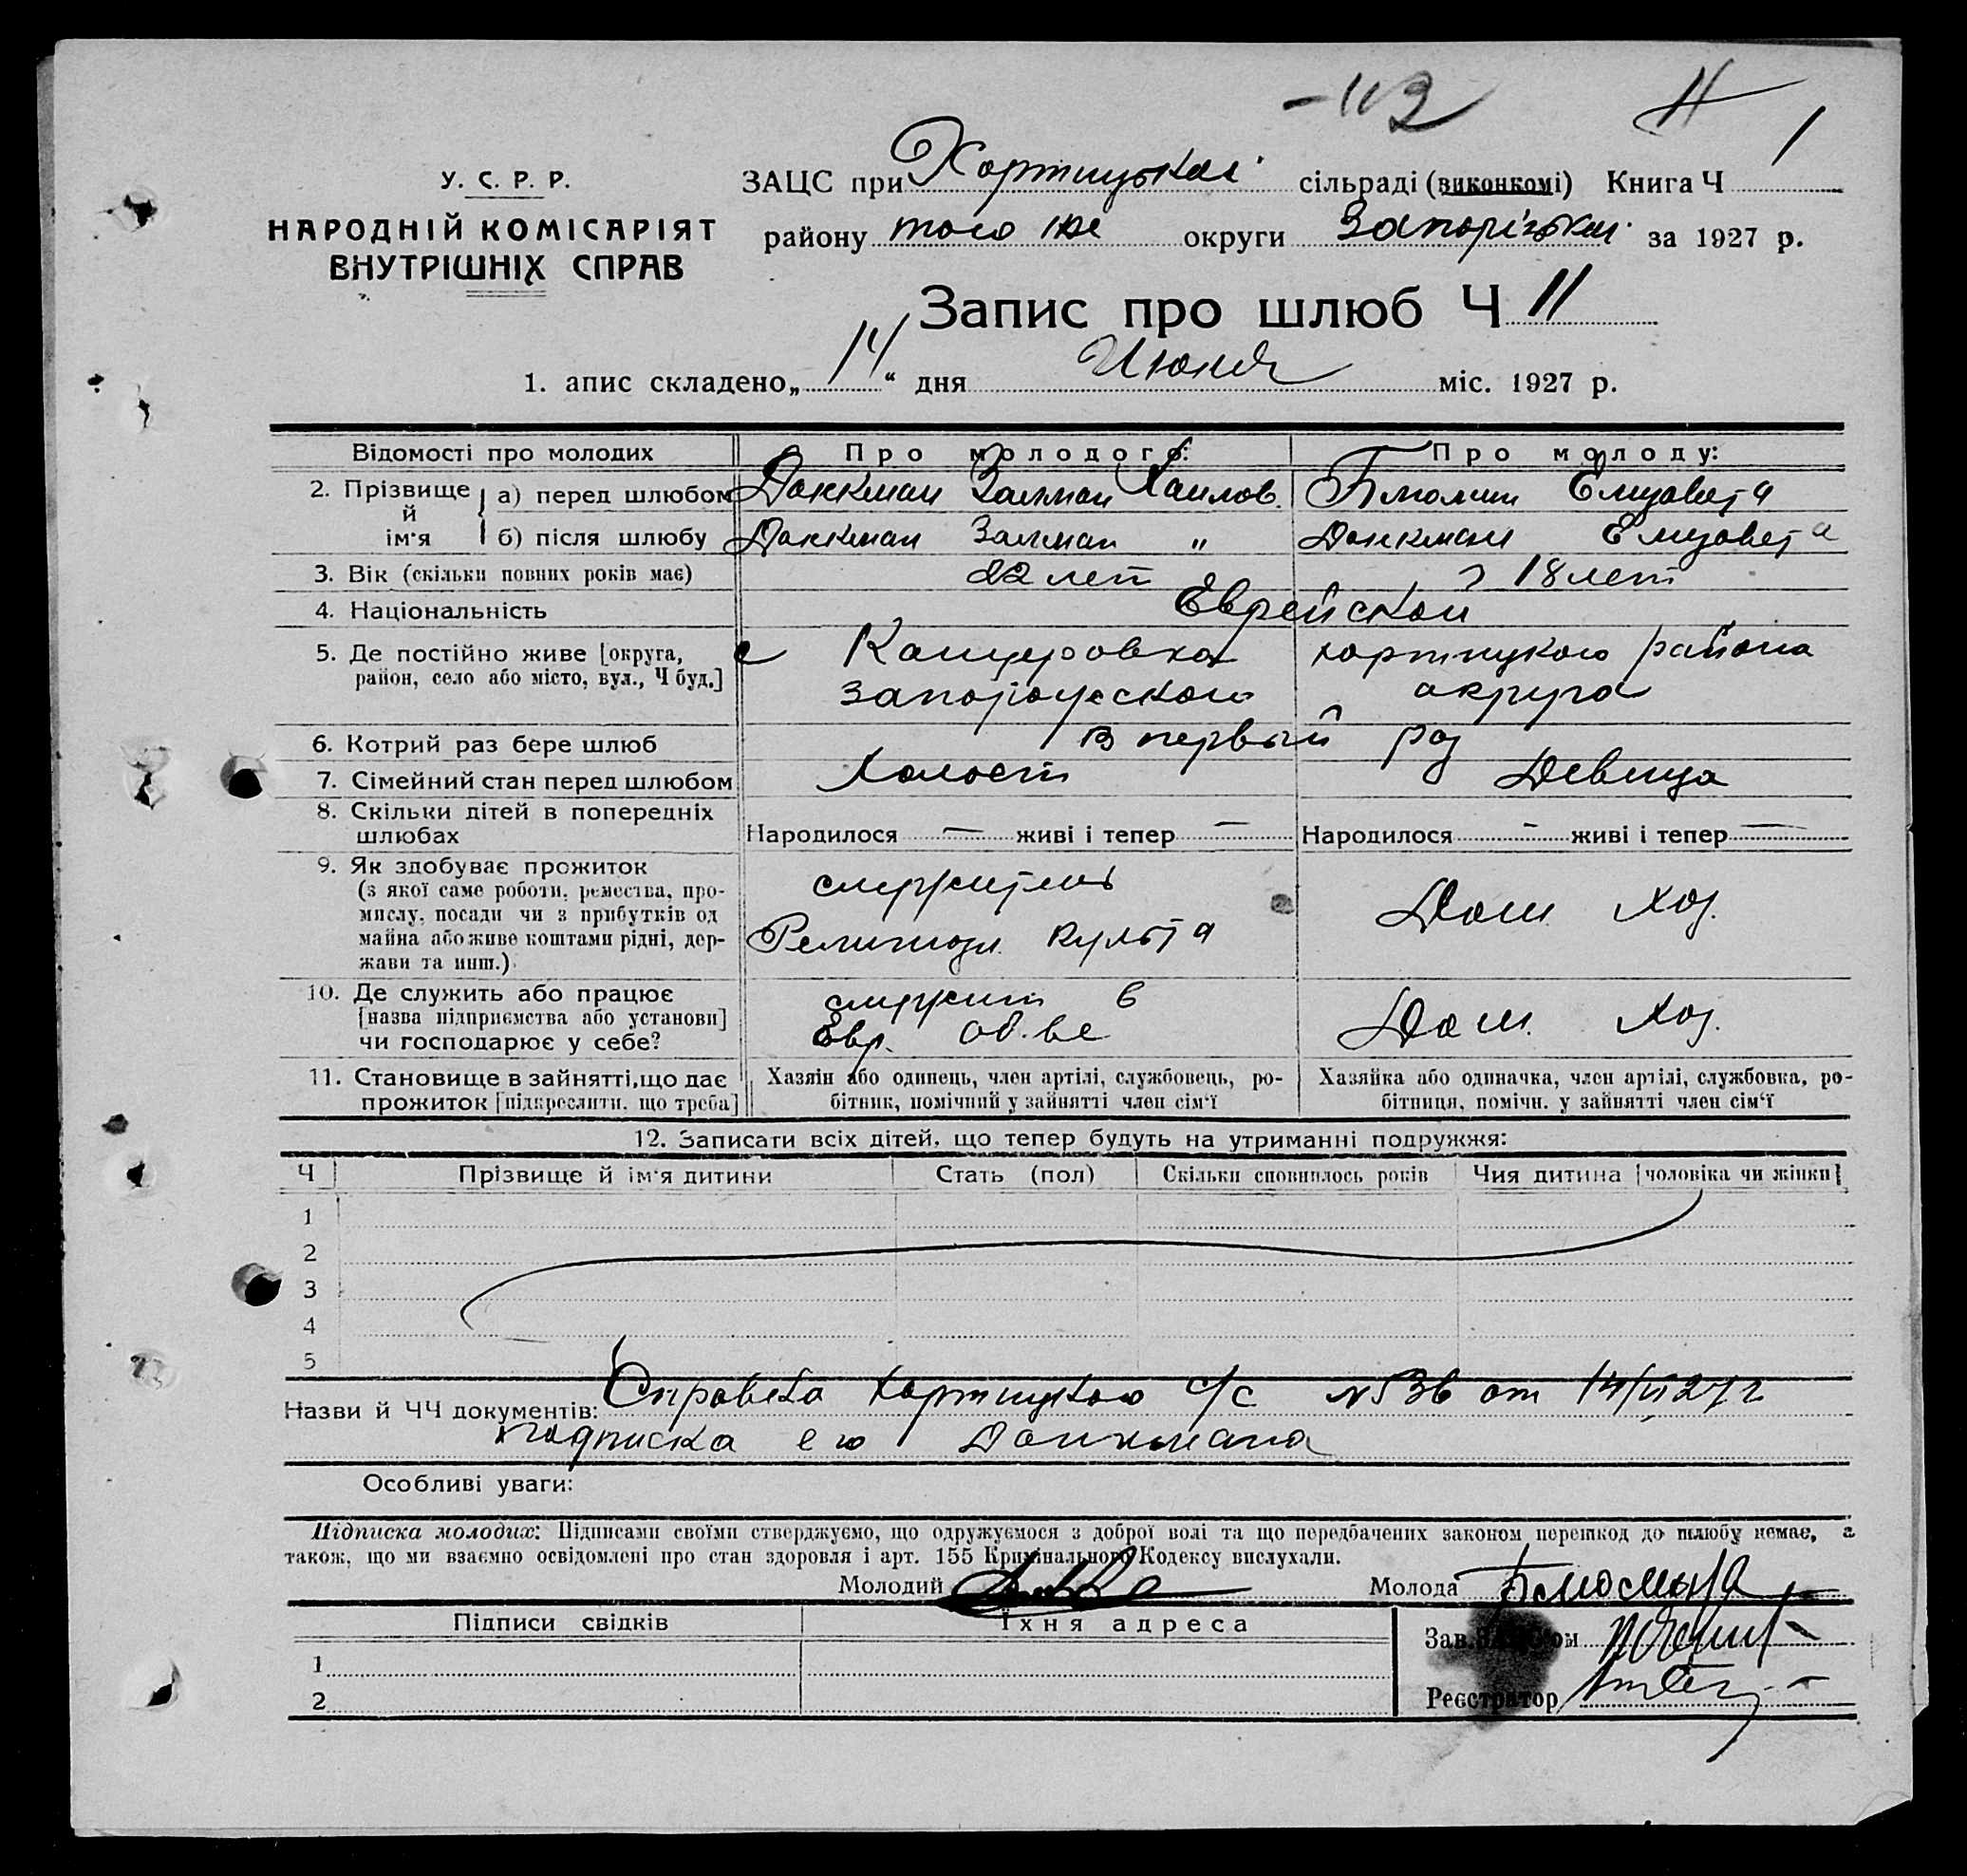 -113
11
У. С. Р. Р.
НАРОДНІЙ КОМІСАРІЯТ
ВНУТРІШНІХ СПРАВ
ЗАЦС при Хортицькай сільраді (виконкомі) Книга Ч 1
району того же округи Запорізькай за 1927 р.
Запис про шлюб Ч 11
1. апис складено „14“ дня Июня міс. 1927 р.
Відомості про молодих Про молодого: Про молоду:
2. Прізвище й ім'я а) перед шлюбом Данкман Залман Хаимов. Блюмин Елизавета
б) після шлюбу Данкман Залман " Данкман Елизавета
3. Вік (скільки повних років має) 22 лет 18 лет
4. Національність Еврейской
5. Де постійно живе [округа, с Канцеровка хортицкого района
район, село або місто, вул., Ч буд.] запорожского округа
6. Котрий раз бере шлюб В первый раз
7. Сімейний стан перед шлюбом Холост Девица
8. Скільки дітей в попередніх
шлюбах Народилося — живі і тепер — Народилося — живі і тепер —
9. Як здобуває прожиток
(з якої саме роботи, ремества, про-
мислу, посади чи з прибутків од
майна або живе коштами рідні, дер-
жави та инш.)
служитель
Религиозн. культа
Дом. Хоз.
10. Де служить або працює
[назва підприємства або установи]
чи господарює у себе?
служит в
Евр. об-ве
Дом. Хоз.
11. Становище в зайнятті, що дає
прожиток [підкреслити, що треба]
Хазяін або одинець, член артілі, службовець, ро-
бітник, помічний у зайнятті член сім'ї
Хазяйка або одиначка, член артілі, службовка, ро-
бітниця, помічн. у зайнятті член сім'ї
12. Записати всіх дітей, що тепер будуть на утриманні подружжя:
Ч Прізвище й ім'я дитини Стать (пол) Скільки сповнилось років Чия дитина [чоловіка чи жінки]
1
2
3
4
5
Назви й ЧЧ документів: Справка Хортицкого с/с №536 от 14/VI 27 г
подписка его Данкмана
Особливі уваги:
Підписка молодих: Підписами своїми стверджуємо, що одружуємося з доброї волі та що передбачених законом перешкод до шлюбу немає, а
також, що ми взаємно освідомлені про стан здоровля і арт. 155 Кримінального Кодексу вислухали.
Молодий Молода Блюмина
Підписи свідків Їхня адреса
1
2
Зав. ЗАЦС'ом
Реєстратор